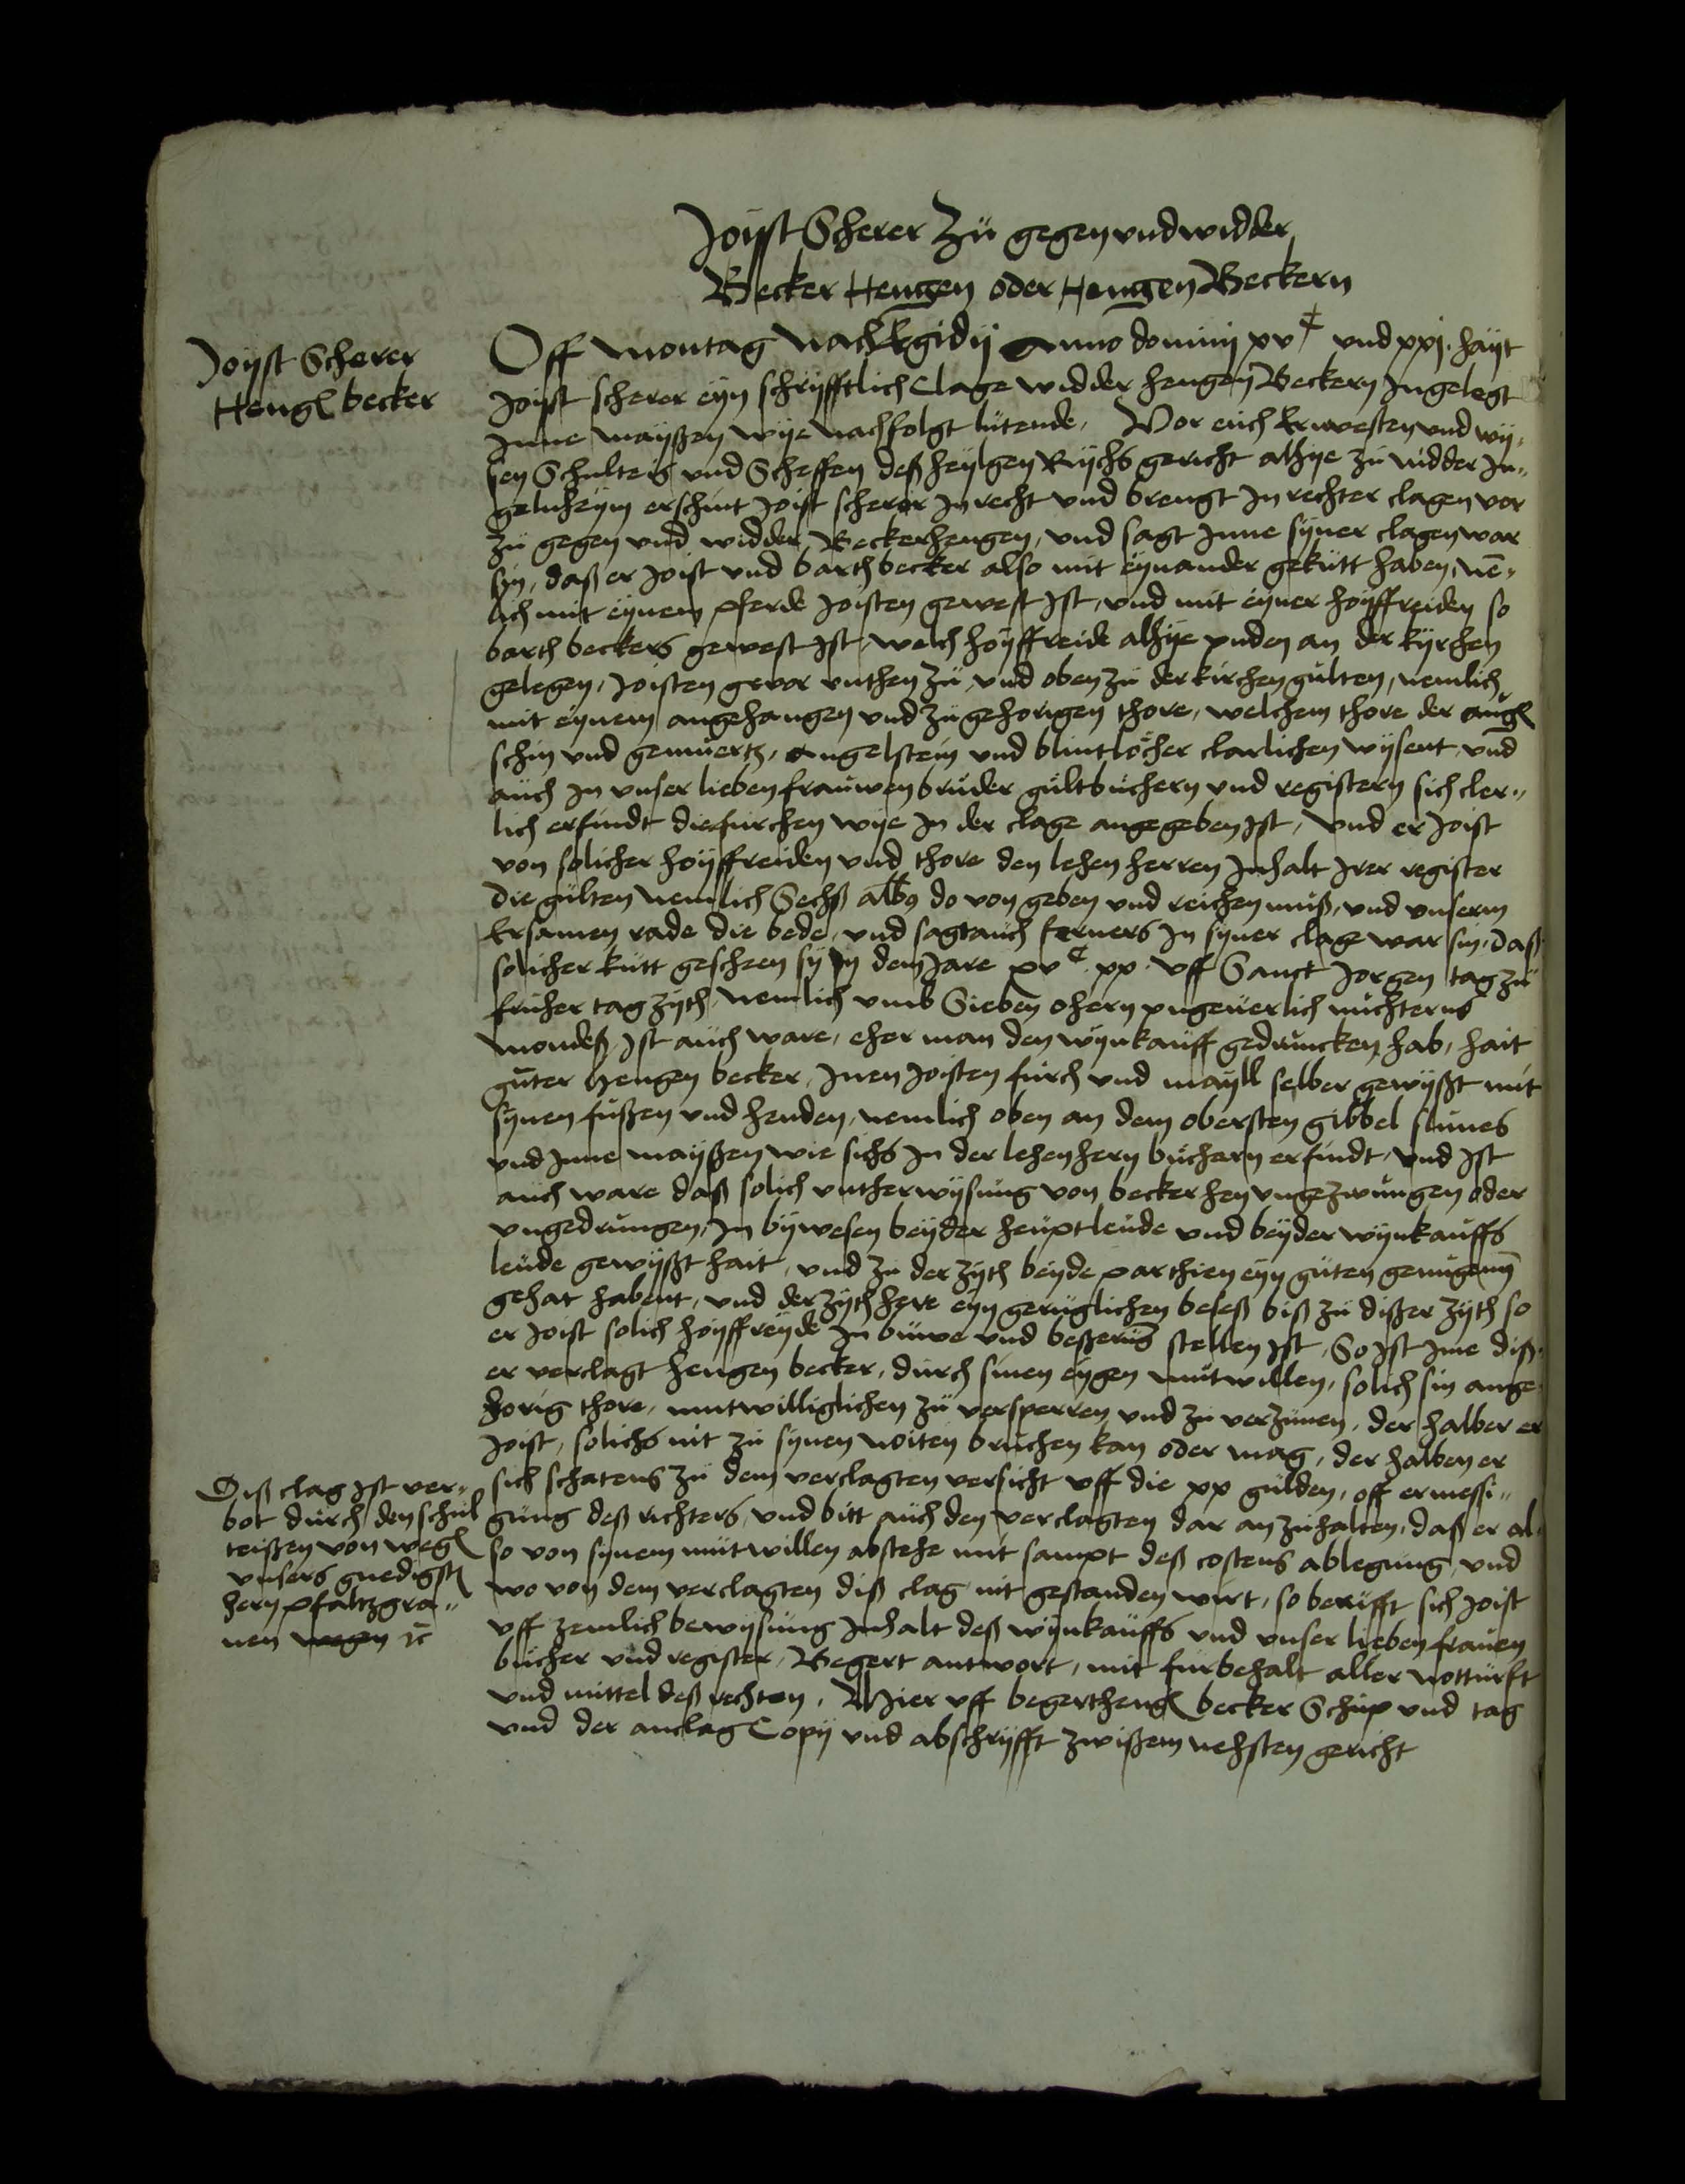 Joijst Scherer zu gegen und widder
Becker Hengen oder Hengen Beckern
Joijst Scherer
Heng becker
Off Montag nach Egidij Anno domini xvc und xxj. haijt
Joijst scherer eijn schrijfftlich Clage widder hengen Beckern Ingelegt
Inne maijßen wije nachfolgt lutende. Vor euch Ernvesten und wij,
sen Schulteis und Scheffen deß heijlgen Rijchs gericht alhije zu nidder In,,
gelnheijm erschint Joist scherer In recht und brengt In rechter clagen vor
zu gegen und widder Beckerhengen, und sagt Inne sijner clagen war
sin, daß er Joist und barth becker also mit eijnander gekutt haben, ne,
lich mit eijnem pferde Joisten gewest Ist, und mit eijner hoijffreiden so
barth beckers gewest Ist, welch hoijffreide alhije unden an der kijrchen
gelegen, Joisten gevor unthen zu, und oben zu der kirchen gulten, nemlich
mit eijnem angehangen und zugehorigen thore, welchem thore der aug
schin und gemuertz, Angelstein und blintlocher clarlichen wijsent, und
auch In unser lieben frauwen bruder gultbuchern und registern sich cler,,
lich erfindt die furchen wije In der clage angegeben Ist, und er Joist
von solicher hoijffreiden und thore den lehen herren Inhalt Irer register
die gulten nemlich Sechß albo do von geben und reichen muß, und unserm
Ersamen rade die bede, und sagt auch ferners In sijner clage war sin, daß
solicher kutt gescheen sij In dem Jare xvc. xx. uff Sanct Jorgen tag zu
fruher tagzijth, nemlich umb Sieben ohern ungeverlich nuchterns
mondeß, Ist auch ware, eher man den wijnkauff gedruncken hab, hait
guter Hengen becker, Inen Joisten furch und maijll selber gewijßt mit
sijnen fußen und henden, nemlich oben an dem obersten gibbel sunes
und Inne maijßen wie sichs In der lehenhern buchern erfindt, und Ist
auch ware daß solich untherwijsung von becker hen ungezwungen oder
ungedrungen, In bijwesen beijder heuptleude und beijder wijnkauffs
leude gewijßt hait, und zu der zijth beijde parthien eijn guten genugeng
gehat habent, und der zijth here eijn geruglichen beseß biß zu dißer zijth so
er Joist solich hoijffreijde In buwe und beßerung stellen Ist, So Ist Ime diß,
er verclagt hengen becker, durch sinen eijgen mutwillen, solich sin ange,
horig thore, mutwilliglichen zu versperren und zu verzunen, der halber er
Joist, solichs nit zu sijnen noiten bruchen kan oder mag, der halben er
sich schatens zu dem verclagten versicht uff die xx gulden, off ermessi,,
gung deß richters, und bitt auch den verclagten dar an zuhalten, daß er al,
so von sijnem mutwillen abstehe mit sampt deß costens ablegung, und
wo von dem verclagten diß clag nit gestanden wirt, so berufft sich Joist
uff zemlich bewijsung Inhalt deß wijnkauffs und unser lieben frauen
bucher und register, Begert antwort, mit furbehalt aller notturft
und mittel deß rechten. Hier uff begert heng becker Schup und tag
und der anclag Copij und abschrijfft zwißem nehsten gericht
Diß clag Ist ver,
bot durch den schul
teißen von weg
unsers gnedigst
hern pfaltzgra,,
uen wegen rc